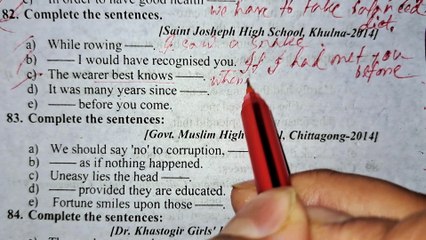 c) In order to have good health ——. we have to take balanced diet.
82. Complete the sentences.
[Saint Josheph High School, Khulna-2014]
a) While rowing ——. I saw a snake
b) —— I would have recognised you. If I had met you before
c) The wearer best knows ——. where
d) It was many years since ——.
e) —— before you come.
83. Complete the sentences:
[Govt. Muslim High School, Chittagong-2014]
a) We should say 'no' to corruption, ——.
b) —— as if nothing happened.
c) Uneasy lies the head ——.
d) —— provided they are educated.
e) Fortune smiles upon those ——.
84. Complete the sentences:
[Dr. Khastogir Girls'